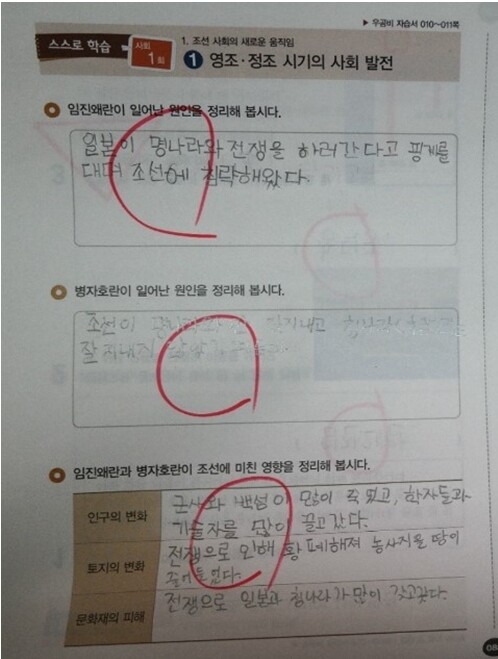 ▶ 우공비 자습서 010~011쪽
스스로 학습 사회 1회
1. 조선 사회의 새로운 움직임
1 영조·정조 시기의 사회 발전
임진왜란이 일어난 원인을 정리해 봅시다.
일본이 명나라와 전쟁을 하러간다고 핑계를
대며 조선에 침략해왔다.
병자호란이 일어난 원인을 정리해 봅시다.
조선이
잘
임진왜란과 병자호란이 조선에 미친 영향을 정리해 봅시다.
인구의 변화
군사와 백성이 많이 죽었고, 학자들과
기술자를 많이 끌고갔다.
토지의 변화
전쟁으로 인해 황폐해져 농사지을 땅이
줄어들었다.
문화재의 피해
전쟁으로 일본과 청나라가 많이 갖고갔다.